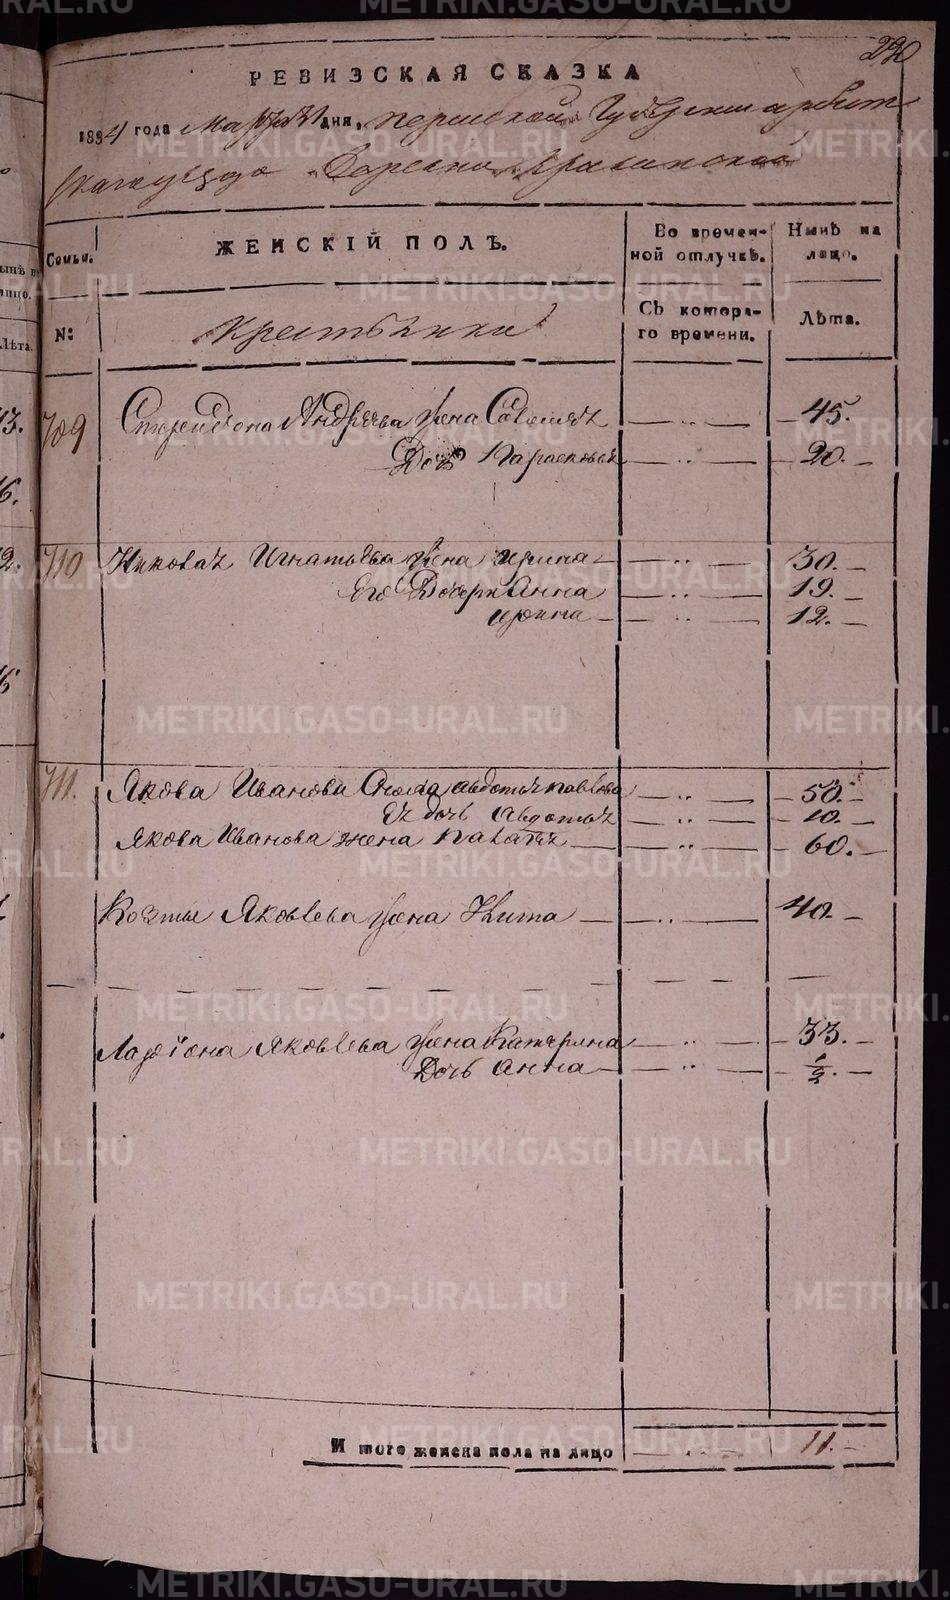 290
РЕВИЗСКАЯ СКАЗКА
1834 года Марта дня, пермской Губернии
Деревни
Семьи.
ЖЕНСКІЙ ПОЛЪ.
Во времен-
ной отлучкѣ.
Нынѣ на
лицо.
№
Крестьянка
Съ котора-
го времени.
Лѣта.
709 Спиридона Андреева жена Соломея 45.
Дочь Парасковья 20.
710 Игнатьева жена ирина 30.
Его Дочери Анна 19.
ирина 12.
711. Якова Иванова Сноха авдотья павлова 50.
Ея дочь авдотья 10.
Якова Иванова жена 60.
Козмы Яковлева жена 40
Ларіона Яковлева жена Катерина 33.
Дочь Анна 1/2.
И того женска пола на лицо 11.
METRIKI.GASO-URAL.RU